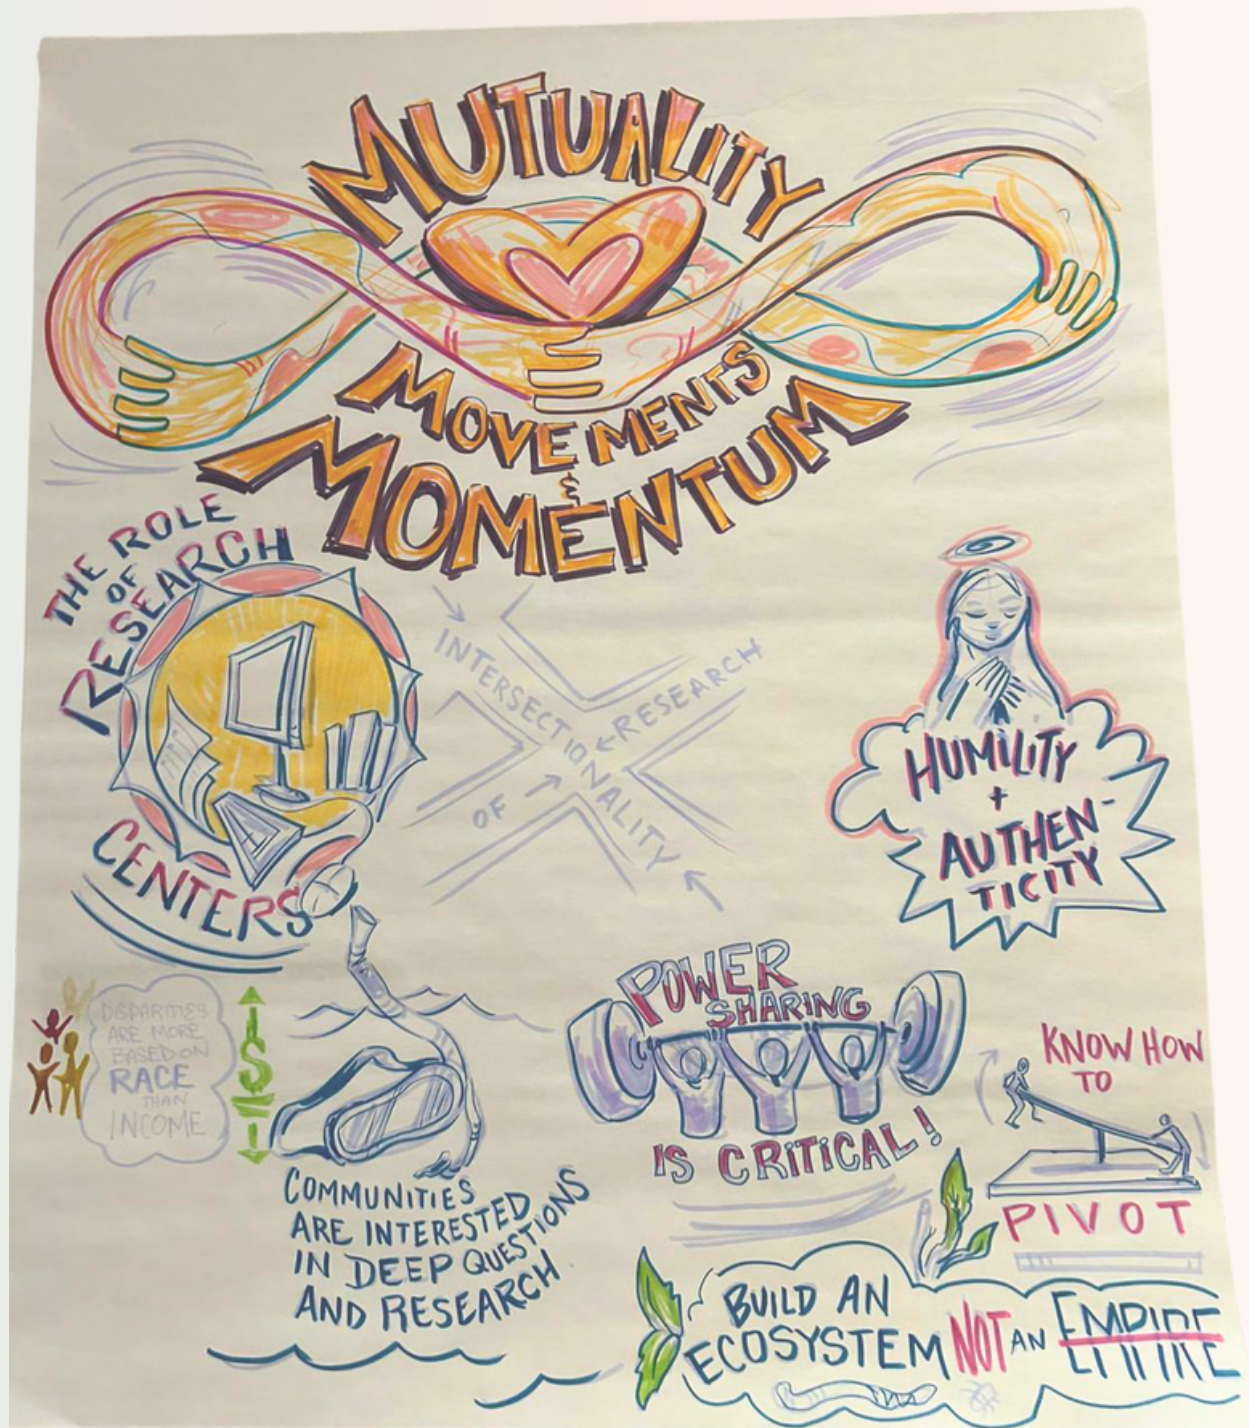 MUTUALITY
MOVEMENTS
&
MOMENTUM
THE ROLE
OF
RESEARCH
CENTERS
INTERSECTIONALITY
OF
RESEARCH
HUMILITY
+
AUTHEN-
TICITY
DISPARITIES
ARE MORE
BASED ON
RACE
THAN
INCOME
$
COMMUNITIES
ARE INTERESTED
IN DEEP QUESTIONS
AND RESEARCH
POWER
SHARING
IS CRITICAL!
KNOW HOW
TO
PIVOT
BUILD AN
ECOSYSTEM NOT AN EMPIRE